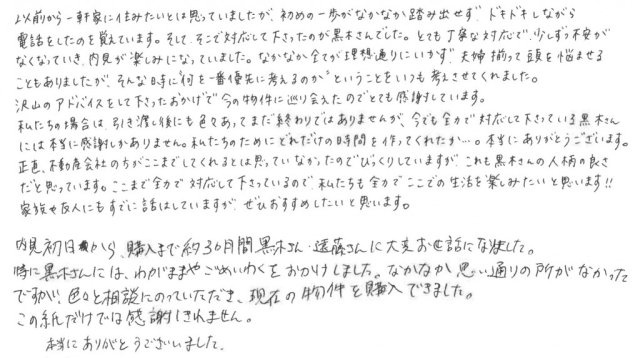 以前から一軒家に住みたいとは思っていましたが、初めの一歩がなかなか踏み出せず、ドキドキしながら
電話をしたのを覚えています。そして、そこで対応して下さったのが黒木さんでした。とても丁寧な対応で、少しずつ不安が
なくなっていき、内見が楽しみになっていました。なかなか全てが理想通りにいかず、夫婦揃って頭を悩ませる
こともありましたが、そんな時に"何を一番優先に考えるのか"ということをいつも考えさせてくれました。
沢山のアドバイスをして下さったおかげで今の物件に巡り会えたのでとても感謝しています。
私たちの場合は、引き渡し後にも色々あってまだ終わりではありませんが、今でも全力で対応して下さっている黒木さん
には本当に感謝しかありません。私たちのためにどれだけの時間を作ってくれたか…。本当にありがとうございます。
正直、不動産会社の方がここまでしてくれるとは思っていなかったのでびっくりしていますが、これも黒木さんの人柄の良さ
だと思っています。ここまで全力で対応して下さっているので、私たちも全力でここでの生活を楽しみたいと思います!!
家族や友人にもすでに話はしていますが、ぜひおすすめしたいと思います。
内見初日から、購入まで約3ヶ月間黒木さん・遠藤さんに大変お世話になりました。
特に黒木さんには、わがままやごめいわくをおかけしました。なかなか思い通りの所がなかった
ですが、色々と相談にのっていただき、現在の物件を購入できました。
この紙だけでは感謝しきれません。
本当にありがとうございました。